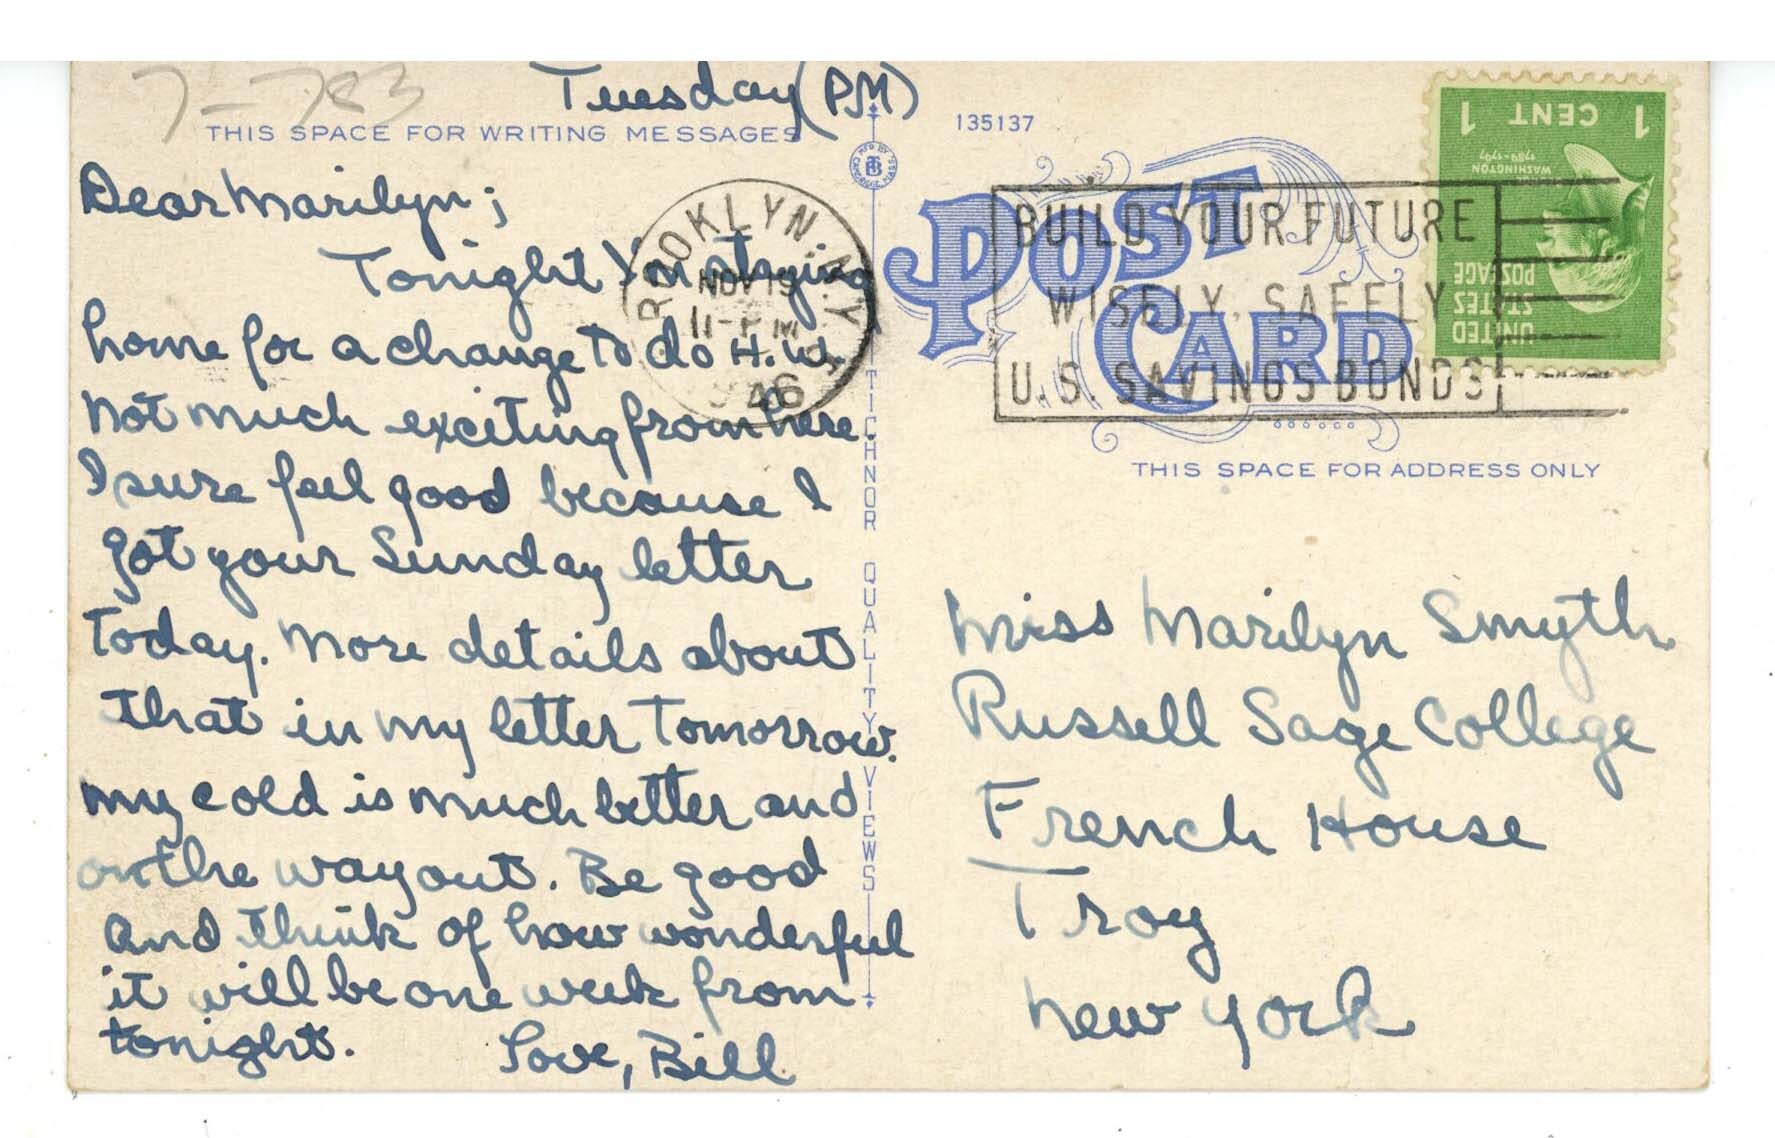 7-783
Tuesday (PM)
THIS SPACE FOR WRITING MESSAGES
Dear Marilyn;
Tonight I'm staying
home for a change to do H.W.
Not much exciting from here.
I sure feel good because I
got your Sunday letter
today. More details about
that in my letter tomorrow.
My cold is much better and
on the way out. Be good
and think of how wonderful
it will be one week from
tonight. Love, Bill
MFD BY
CAMBRIDGE, MASS.
TICHNOR QUALITY VIEWS
135137
POST
CARD
BROOKLYN, N.Y.
NOV 19
11-PM
1946
BUILD YOUR FUTURE
WISELY, SAFELY
U.S. SAVINGS BONDS
UNITED
STATES
POSTAGE
WASHINGTON
1789-1797
1 CENT 1
THIS SPACE FOR ADDRESS ONLY
Miss Marilyn Smyth
Russell Sage College
French House
Troy
New York